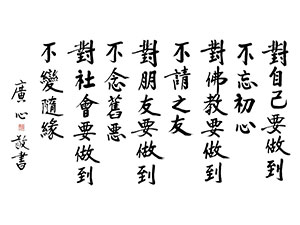 對自己要做到
不忘初心
對佛教要做到
不請之友
對朋友要做到
不念舊惡
對社會要做到
不變隨緣
廣心敬書